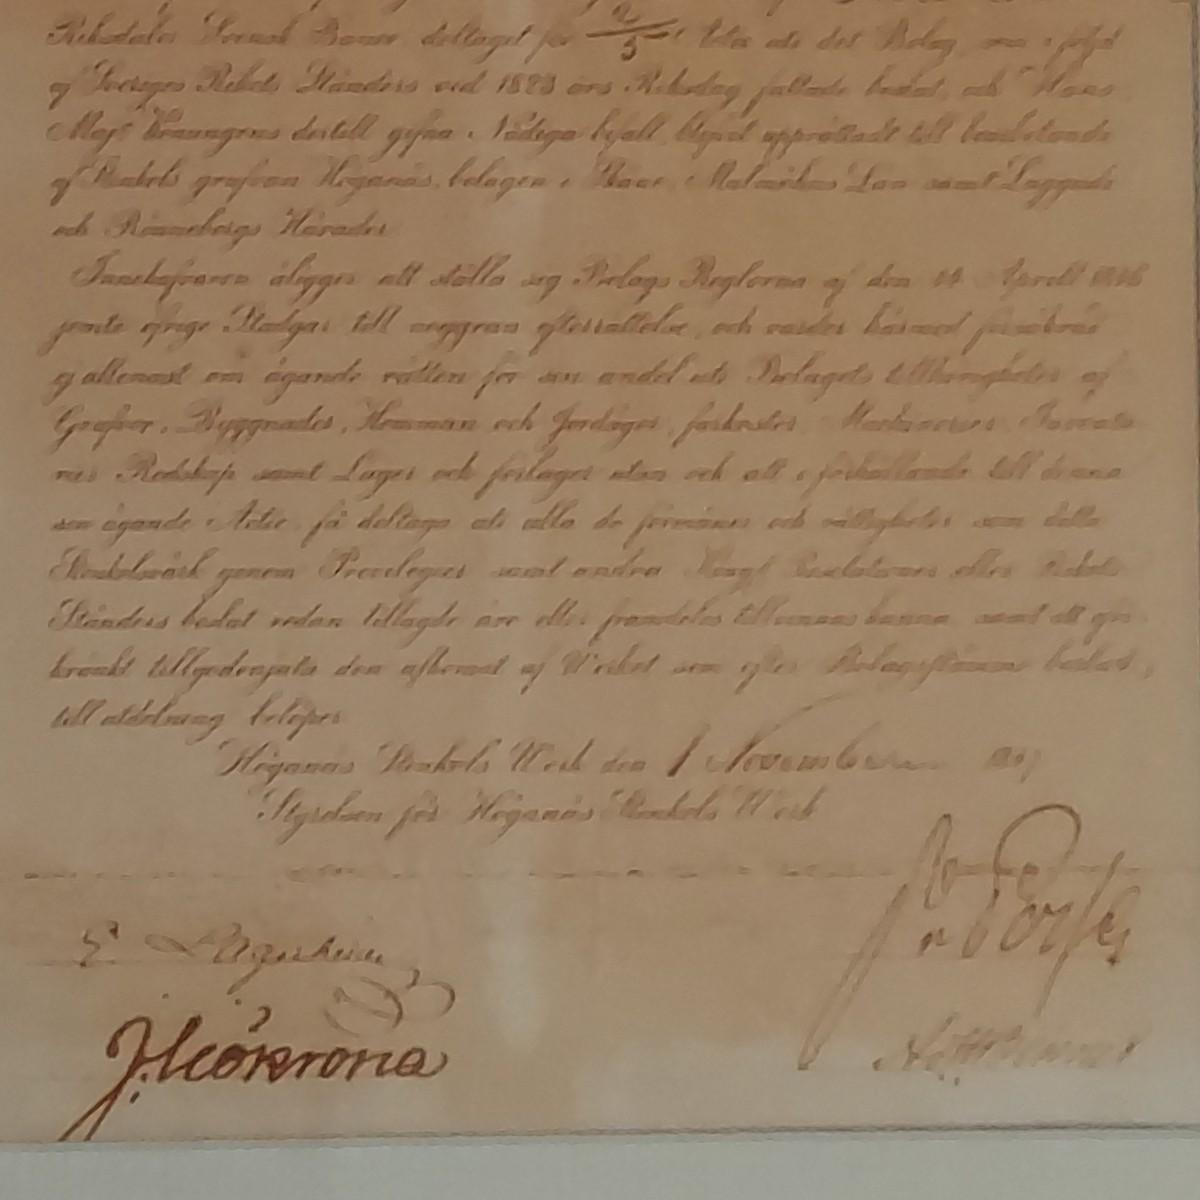 Riksdaler Svensk Banco deltaget för 2/5 Lotta uti det Bolag, som i följd
af Sveriges Rikets Ständers vid 1823 års Riksdag fattade beslut, och Hans
Majt Konungens dertill gifna Nådiga bifall, blifvit upprättadt till bearbetande
af Stenkols grufvan Höganäs, belägen i Skåne, Malmöhus Län samt Luggude
och Rönnebergs Härader
Innehafvaren åligger att ställa sig Bolags Reglorna af den 14 Aprill
jemte öfrige Stadgar till noggran efterrättelse, och varder härmed försäkrad
ej allenast om ägande rätten för sin andel uti Bolagets tillhörigheter af
Grufvor, Byggnader, Hemman och Jordäger, Machinerier, Inventa
rier Redskap samt Lager och förlager utan och att i förhållande till denna
sin ägande Actie få deltaga uti alla de förmåner och rättigheter som detta
Stenkolswärk genom Privilegier samt andra Kongl Resolutioner eller Rikets
Ständers beslut redan tillagde äro eller framdeles tillvinnas kunna samt att
kränkt tillgodonjuta den afkomst af Werket som efter Bolagsstämmo beslut,
till utdelning belöper
Höganäs Stenkols Werk den 1 November
Styrelsen för Höganäs Stenkols Werk